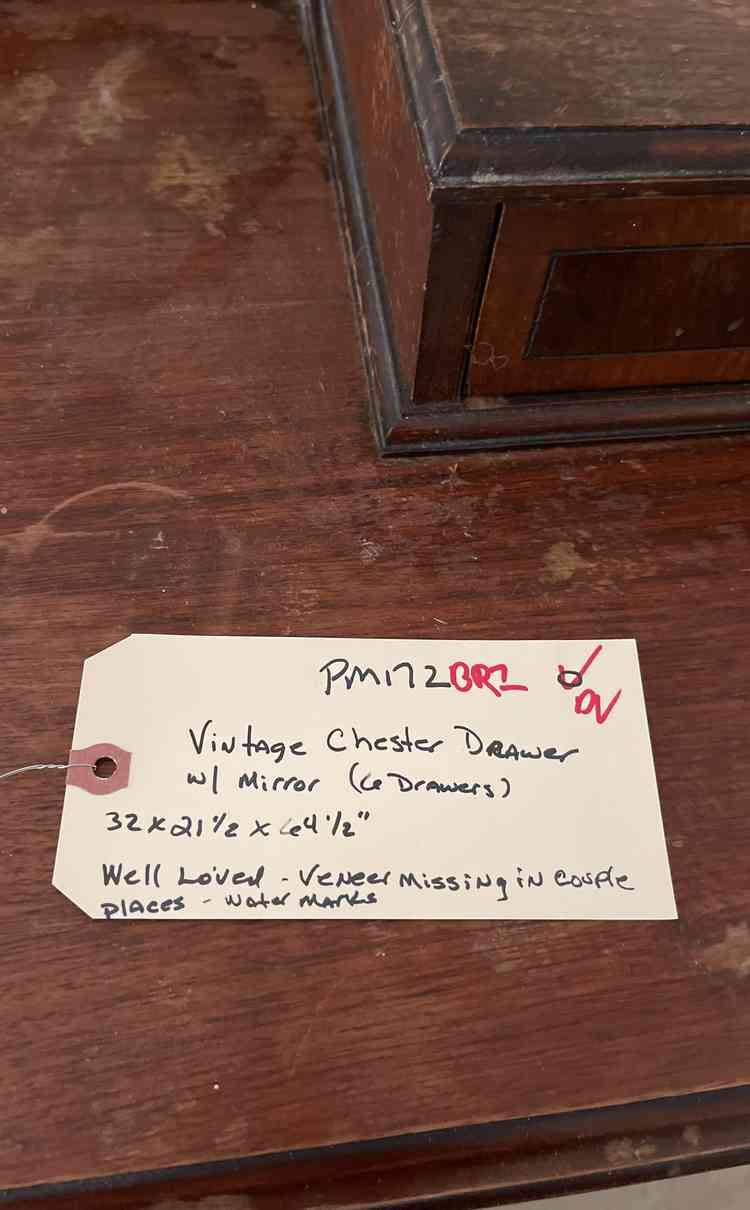 PM172BR1 DV
Vintage Chester Drawer
w/ Mirror (6 Drawers)
32 x 21 1/2 x 64 1/2"
Well Loved - Veneer Missing in Couple
places - water marks